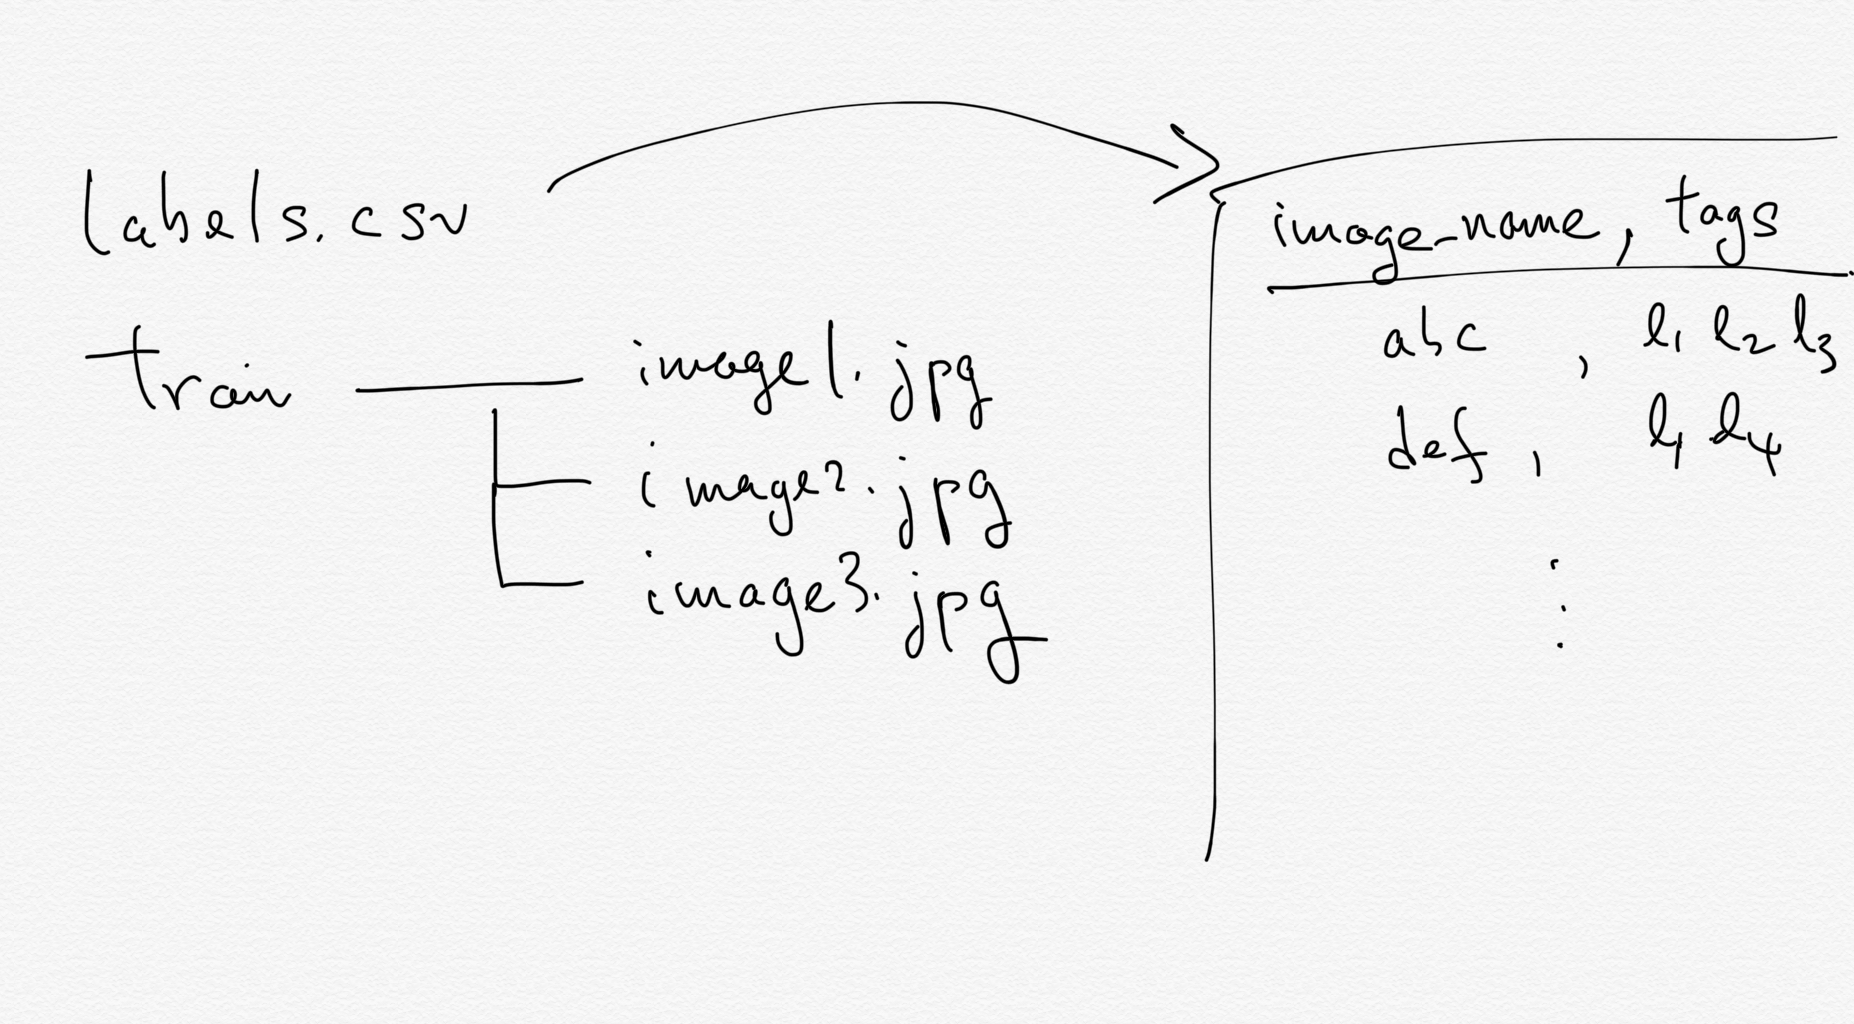 labels.csv
train
image1.jpg
image2.jpg
image3.jpg
image_name, tags
abc , l1 l2 l3
def , l1 l4